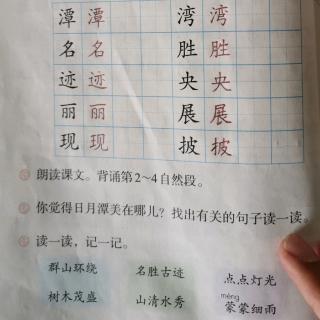 潭 潭 湾 湾
名 名 胜 胜
迹 迹 央 央
丽 丽 展 展
现 现 披 披
朗读课文。背诵第2~4自然段。
你觉得日月潭美在哪儿？找出有关的句子读一读。
读一读，记一记。
群山环绕 名胜古迹 点点灯光
méng
树木茂盛 山清水秀 蒙蒙细雨